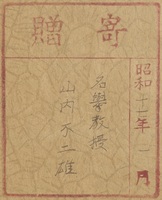 寄贈
昭和十二年一月
名誉教授
山内不二雄